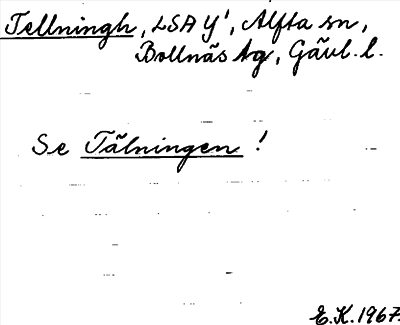 Tellningh, LSA Y', Alfta sn,
Bollnäs tg, Gävl. l.
Se Tälningen!
E.K. 1967.